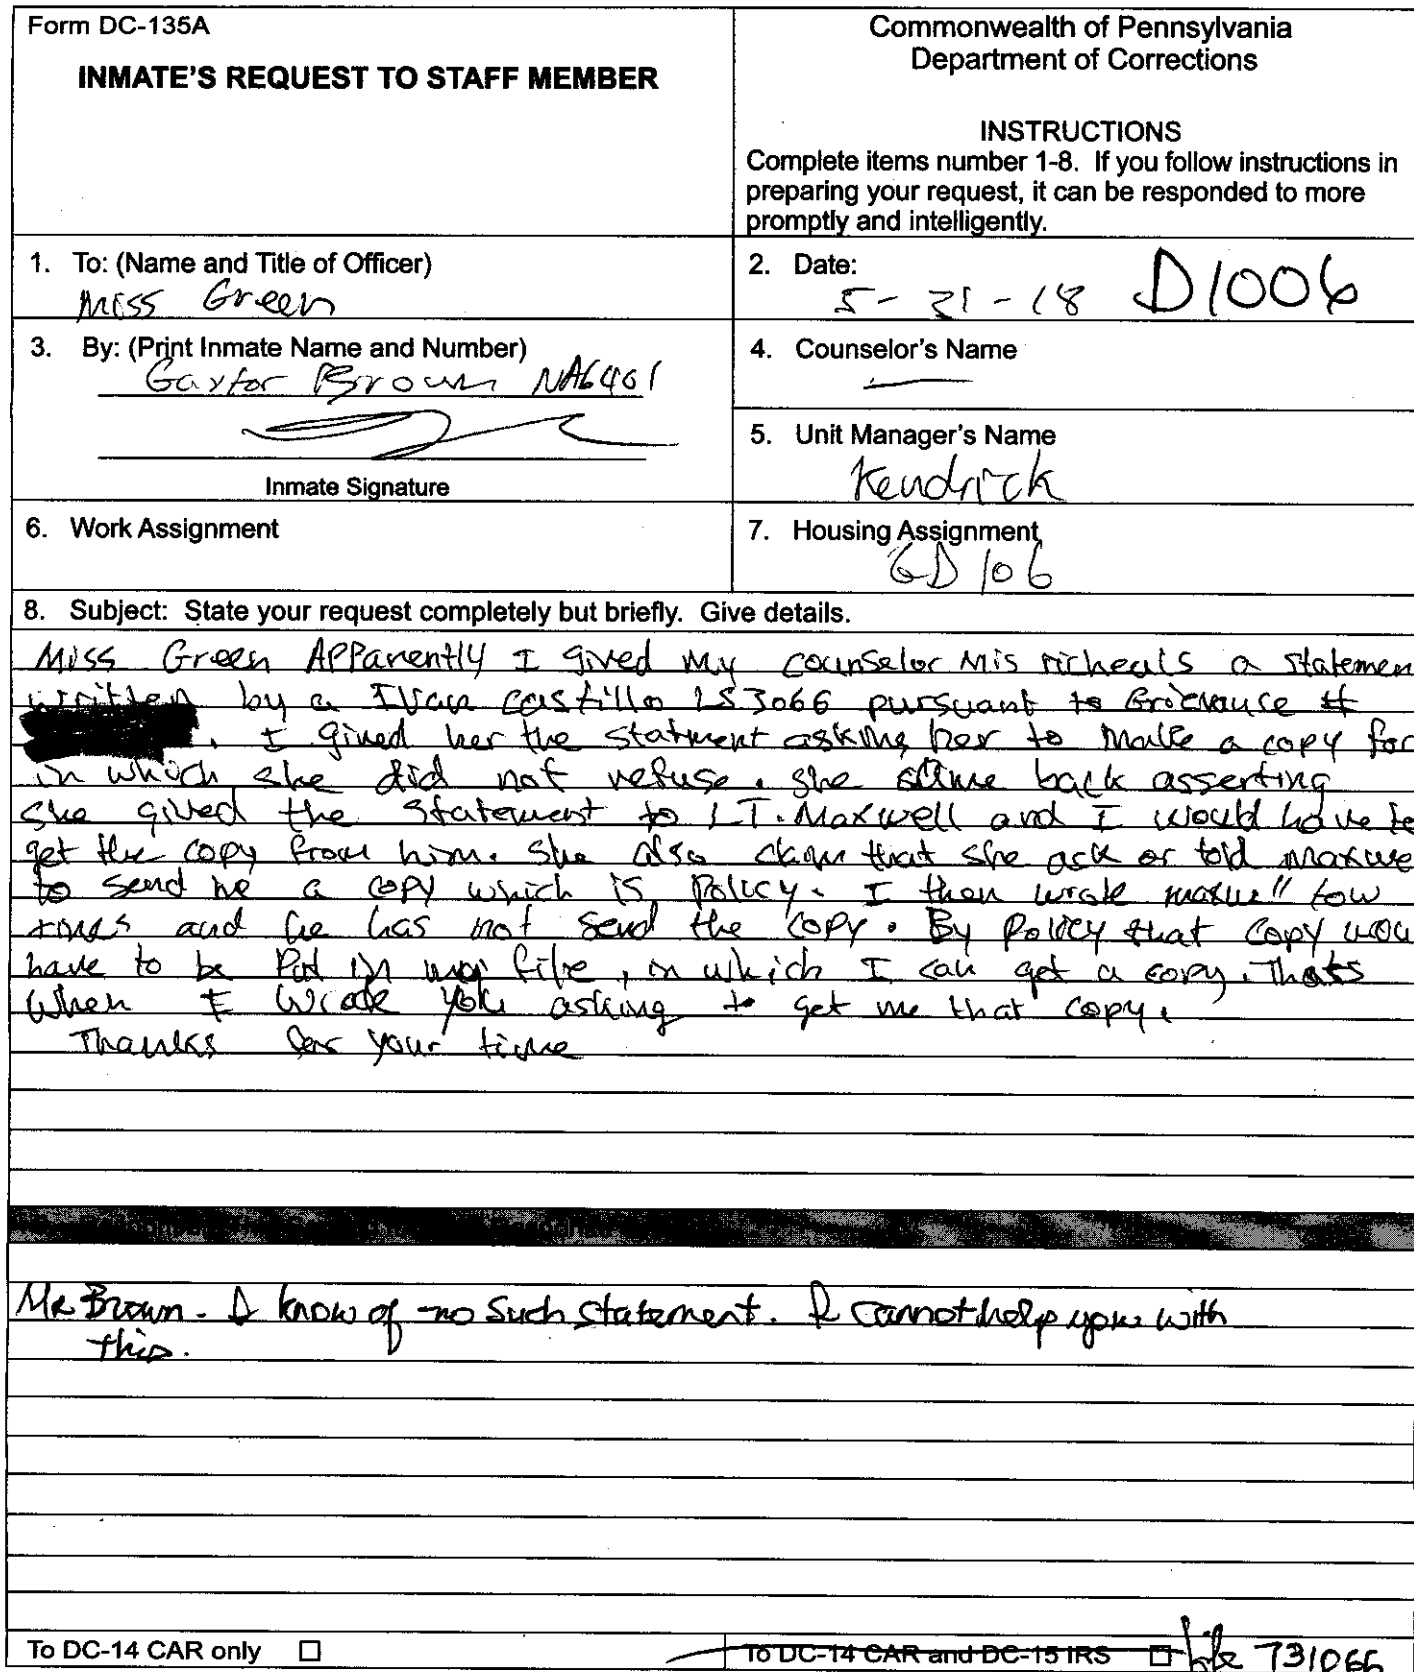 Form DC-135A
INMATE'S REQUEST TO STAFF MEMBER
Commonwealth of Pennsylvania
Department of Corrections
INSTRUCTIONS
Complete items number 1-8. If you follow instructions in
preparing your request, it can be responded to more
promptly and intelligently.
1. To: (Name and Title of Officer)
Miss Green
2. Date:
5-21-18 D1006
3. By: (Print Inmate Name and Number)
Brown NA6401
Inmate Signature
4. Counselor's Name
5. Unit Manager's Name
Kendrick
6. Work Assignment
7. Housing Assignment
GD 106
8. Subject: State your request completely but briefly. Give details.
Miss Green Apparently I gived my counselor Mis richeals a statemen
written by a Ivan Castillo LS3066 pursuant to Grievance #
. I gived her the statment asking her to make a copy for
in which she did not refuse. she back asserting
she gived the statement to LT. Maxwell and I would have to
get the copy from him. She also claim that she ack or told maxwe
to send me a copy which is Policy. I then wrote maxwell tow
times and he has not send the copy. By Policy that copy wou
have to be Put in my file, in which I can get a copy. Thats
when I wrote you asking to get me that copy.
Thanks for your time
Mr Brown - I know of no such statement. I cannot help you with
this.
To DC-14 CAR only ☐
To DC-14 CAR and DC-15 IRS ☐ file 731066